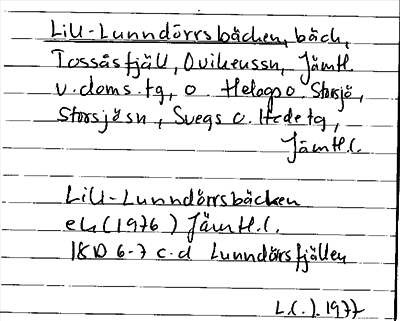 Lill-Lunndörrsbäcken, bäck,
Tossåsfjäll, Ovikenssn, Jämtl.
v. doms. tg, o. Helags o. Storsjö,
Storsjösn, Svegs o. Hede tg,
Jämtl.l.
Lill-Lunndörrsbäcken
ek (1976) Jämtl.l.
18D 6-7 c-d Lunndörrsfjällen
L(.). 1977